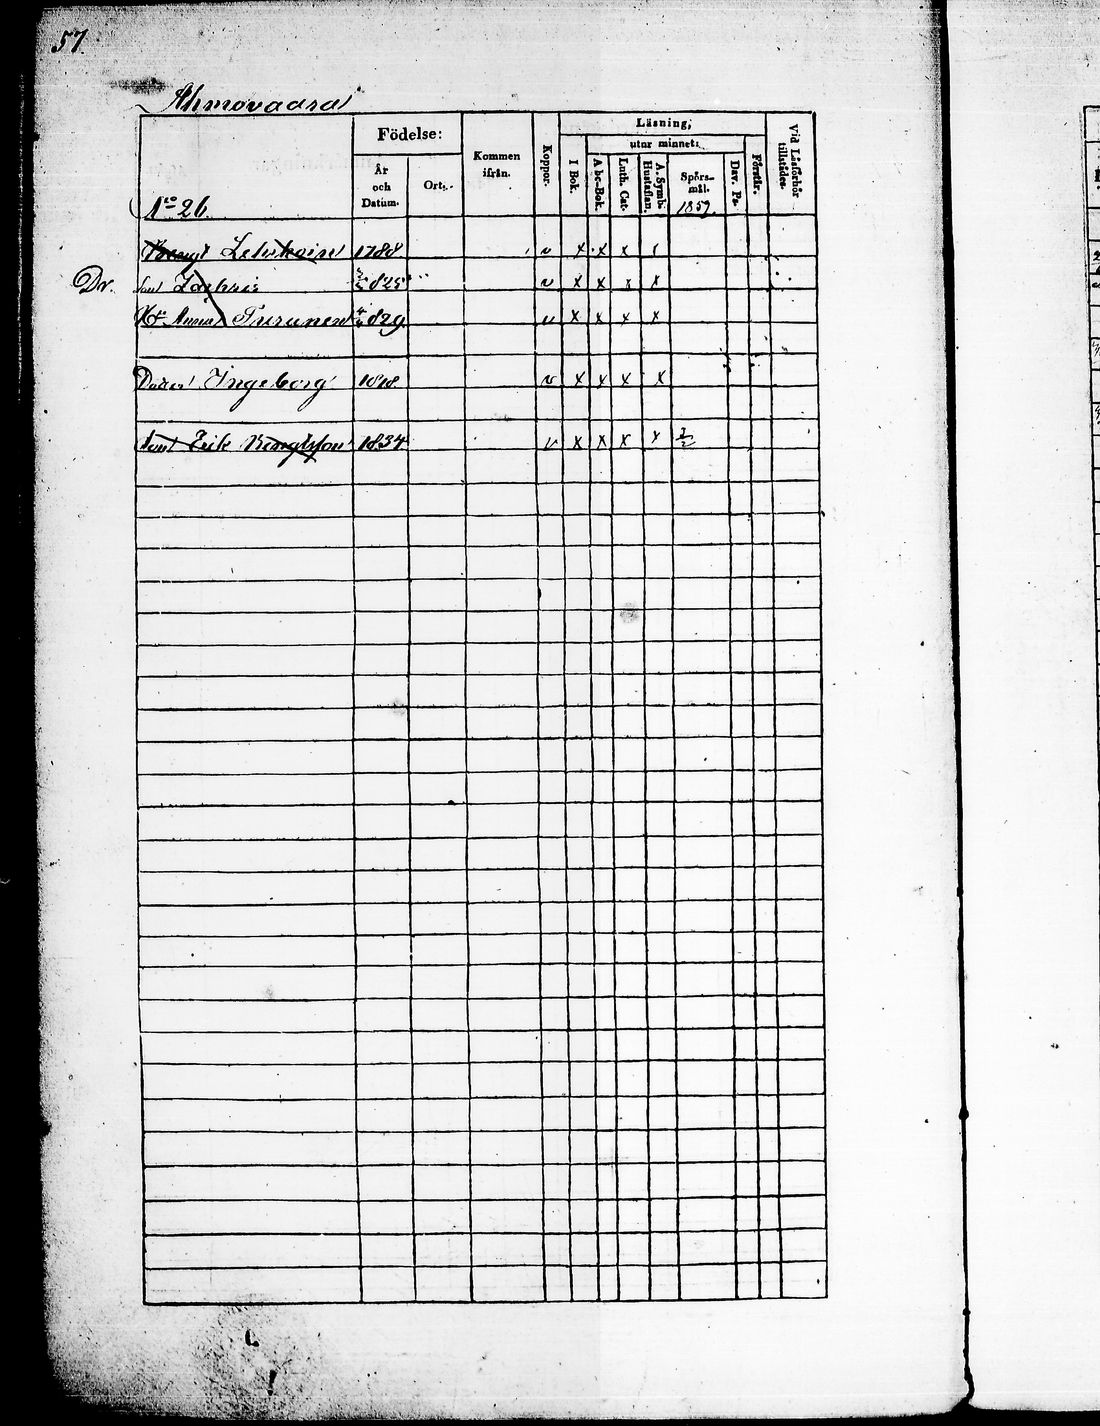 57.
Ahmovaara
Födelse:
År
och
Datum.
Ort.
Kommen
ifrån.
Koppor.
Läsning,
I Bok.
utur minnet:
A bc-Bok.
Luth. Cat.
A. Symb.
Hustaflan.
Spörs-
mål.
1859.
Dav. Ps.
Förstår.
Vid Läsförhör
tillstädes.
N:o 26
Bengt 1788 v x x x
Dr. son Zachris 825 v x x x x
H:u Anna Turunen 829 v x x x x
Dotter Ingeborg 1818 v x x x x
son Erik Bengtsson 1834 v x x x x